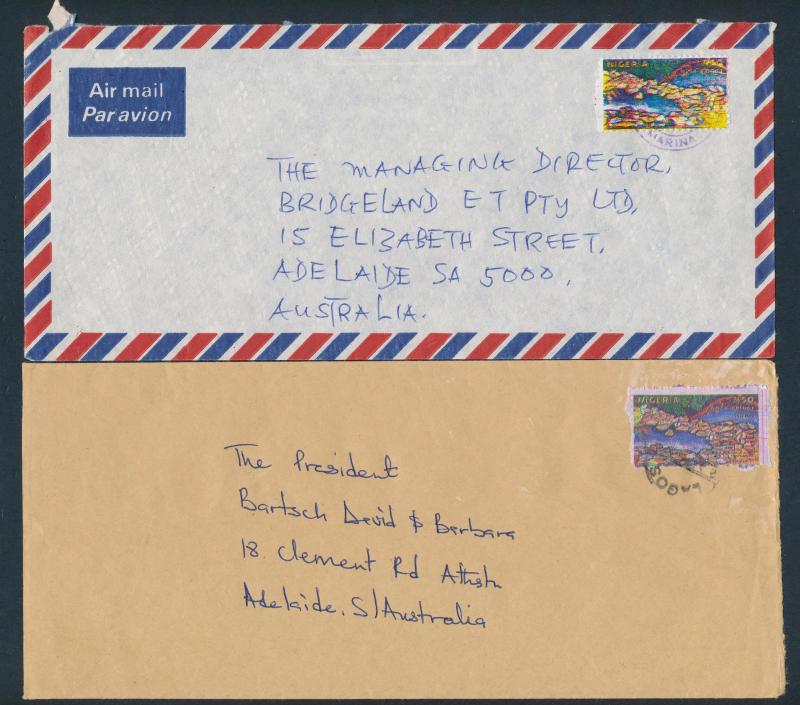 Air mail
Par avion
NIGERIA
MARINA
THE MANAGING DIRECTOR,
BRIDGELAND E T PTY LTD,
15 ELIZABETH STREET,
ADELAIDE SA 5000,
AUSTRALIA.
NIGERIA
N50
LAGOS
The President
Bartsch David & Barbara
18 Clement Rd
Adelaide, S/Australia